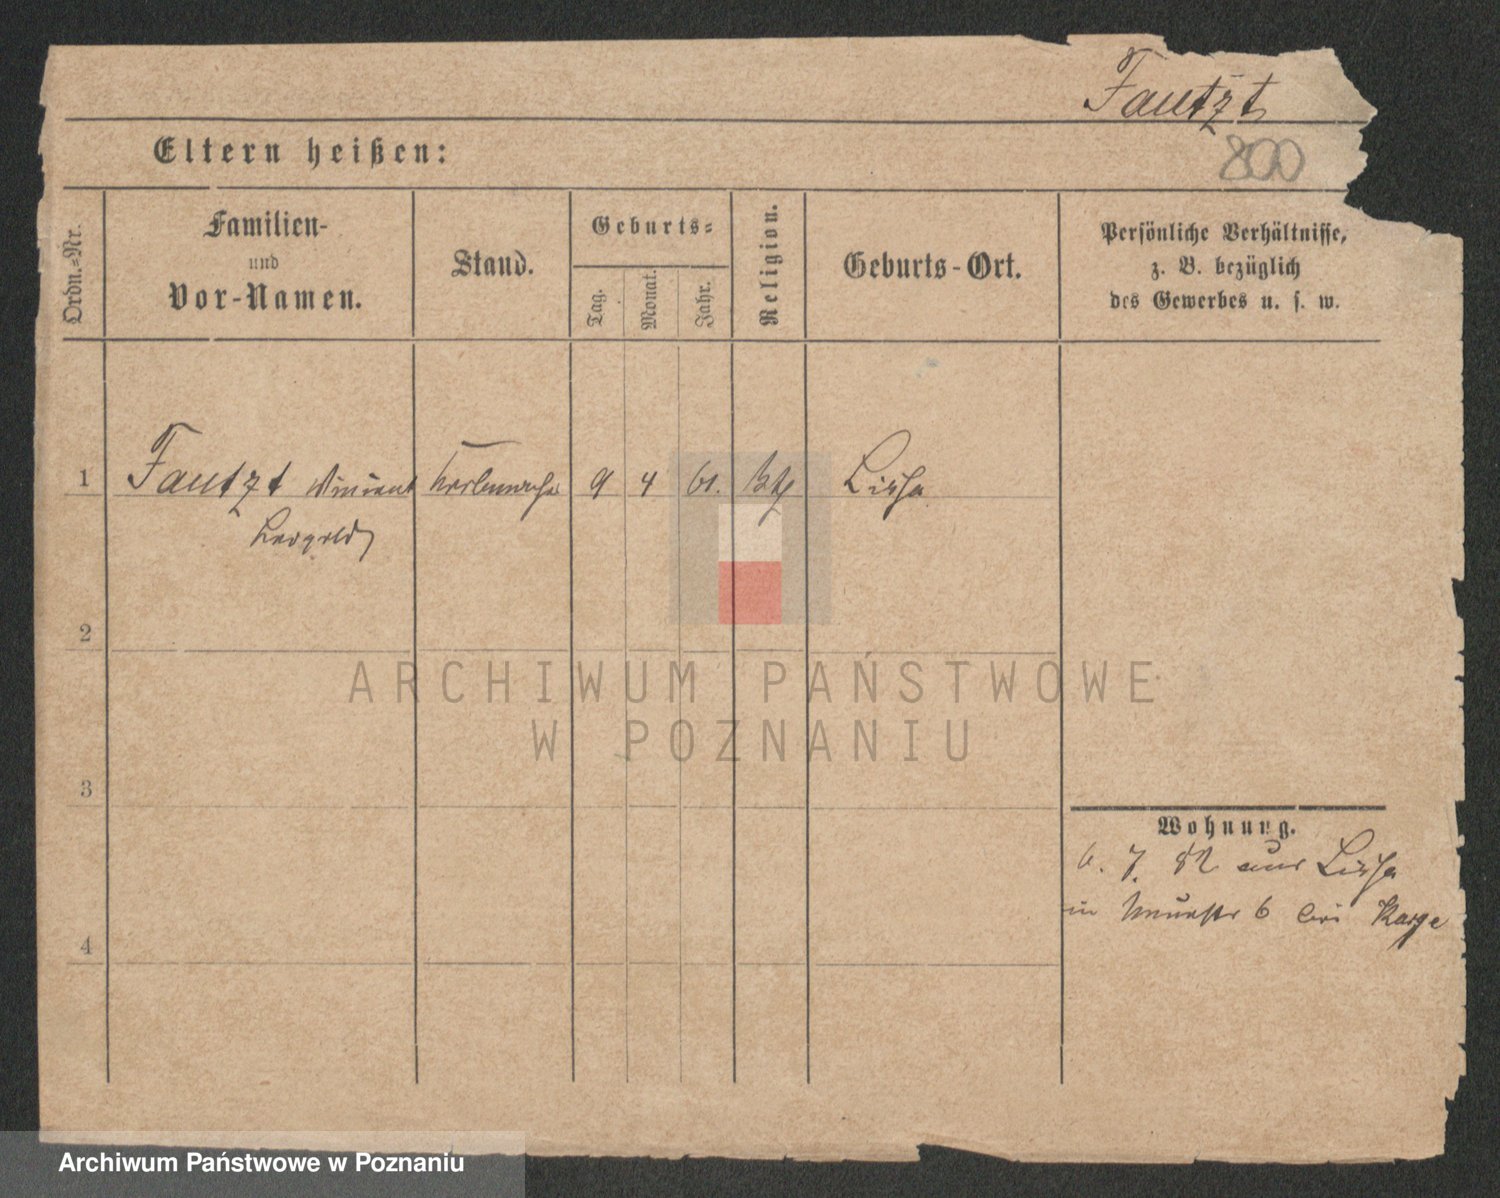 Fautzt
800
Eltern heißen:
Ordn.-Nr.
Familien-
und
Vor-Namen.
Stand.
Geburts-
Tag.
Monat.
Jahr.
Religion.
Geburts-Ort.
Persönliche Verhältnisse,
z. B. bezüglich
des Gewerbes u. s. w.
1 Fautzt Vincent 9 4 61. Kth Lissa
Leopold
2
3
4
Wohnung.
6. 7. 82 aus Lissa
in 6 bei Karge
ARCHIWUM PAŃSTWOWE
W POZNANIU
Archiwum Państwowe w Poznaniu